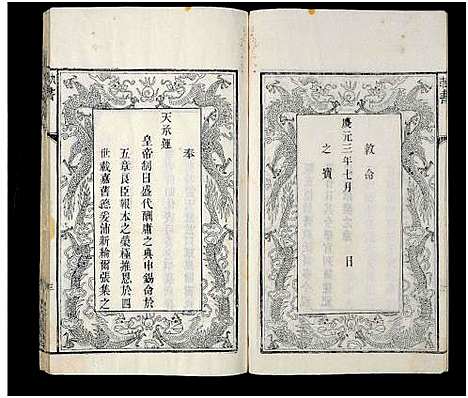 敕命
慶元三年七月 日
之寶
奉
天承運
皇帝制曰盛代酬庸之典申錫命於
五章良臣報本之榮極推恩於四
世載嘉舊德爰沛新綸爾張集之